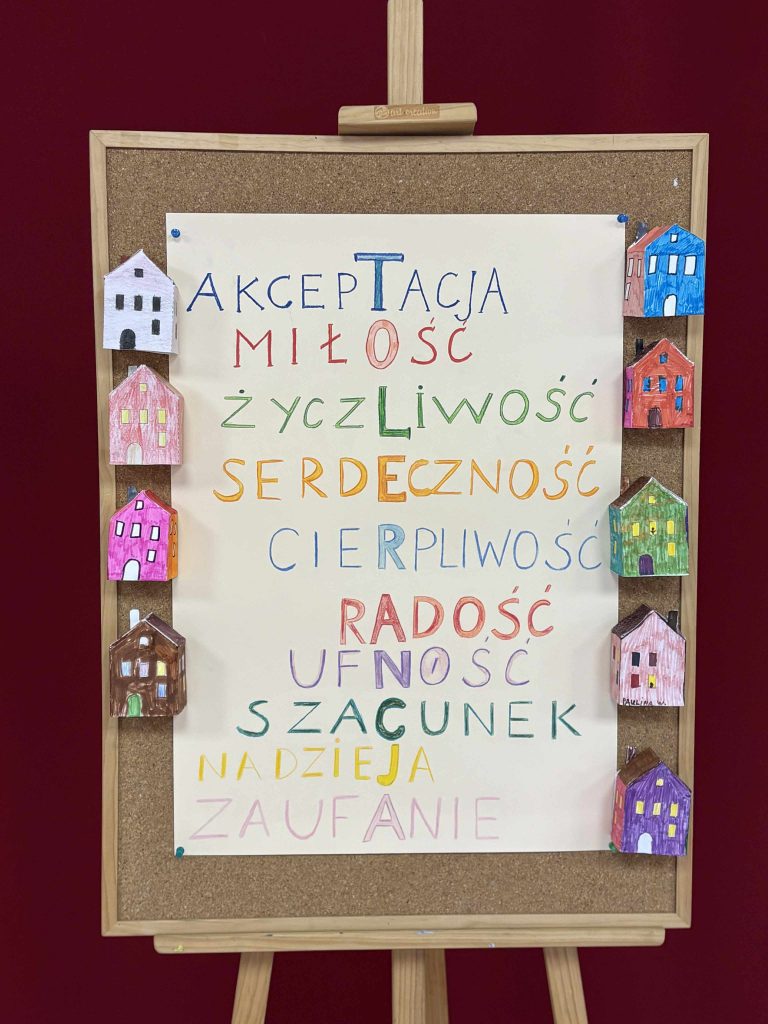 AKCEPTACJA
MIŁOŚĆ
ŻYCZLIWOŚĆ
SERDECZNOŚĆ
CIERPLIWOŚĆ
RADOŚĆ
UFNOŚĆ
SZACUNEK
NADZIEJA
ZAUFANIE
PAULINA W.